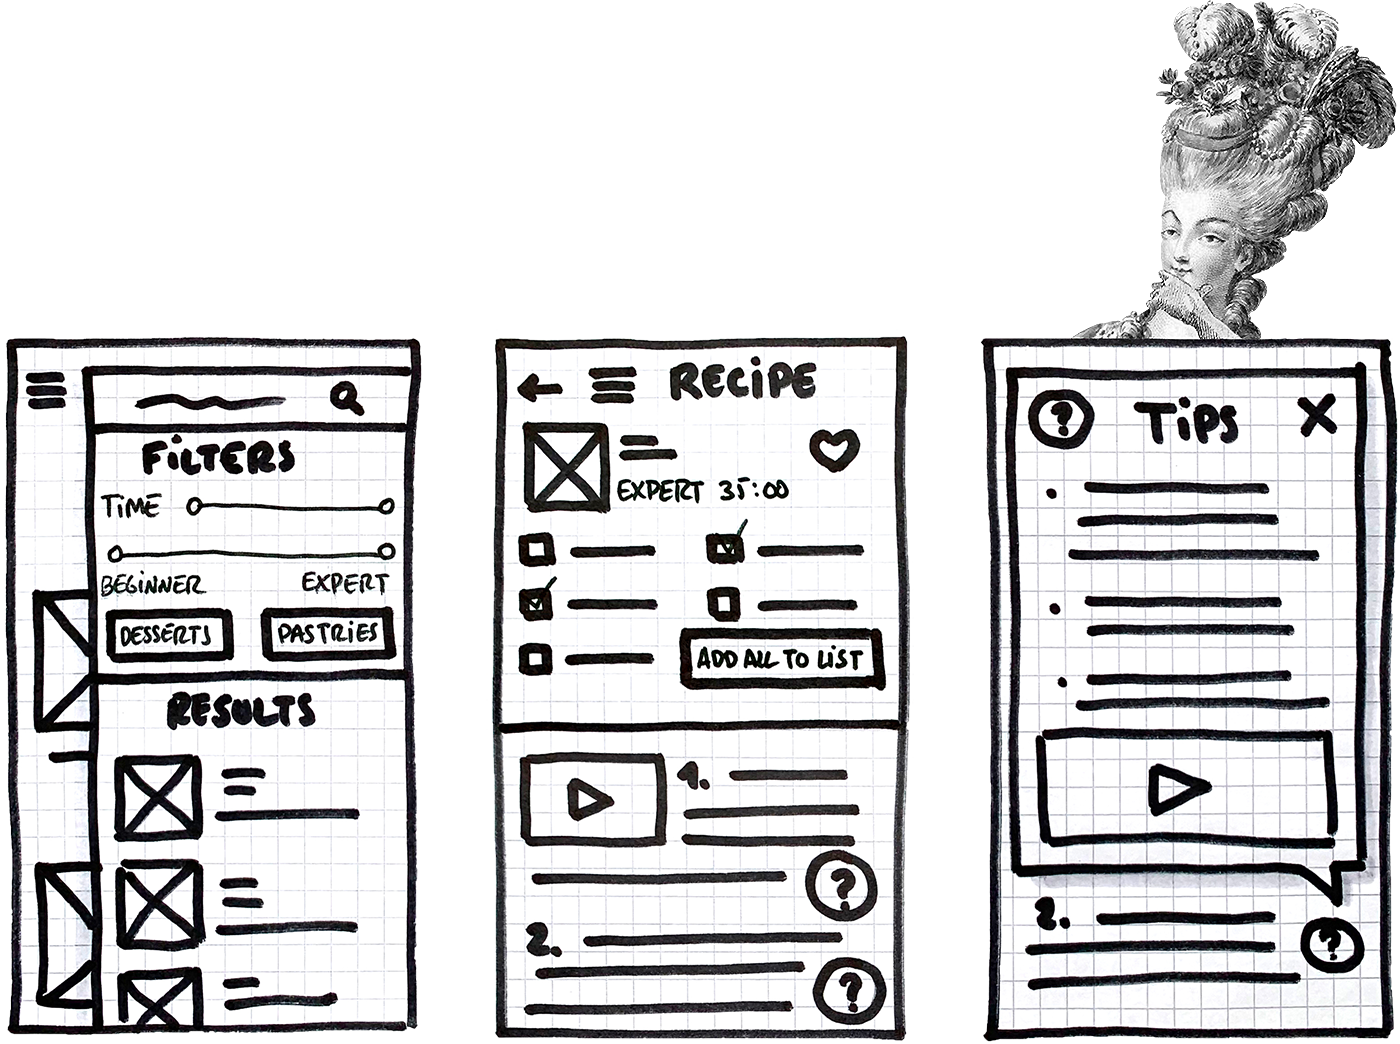 FiLTERS
TiME
BEGiNNER EXPERT
DESSERTS PASTRiES
RESULTS
RECiPE
EXPERT 35:00
ADD ALL TO LiST
1.
?
2.
?
? TiPS X
2.
?